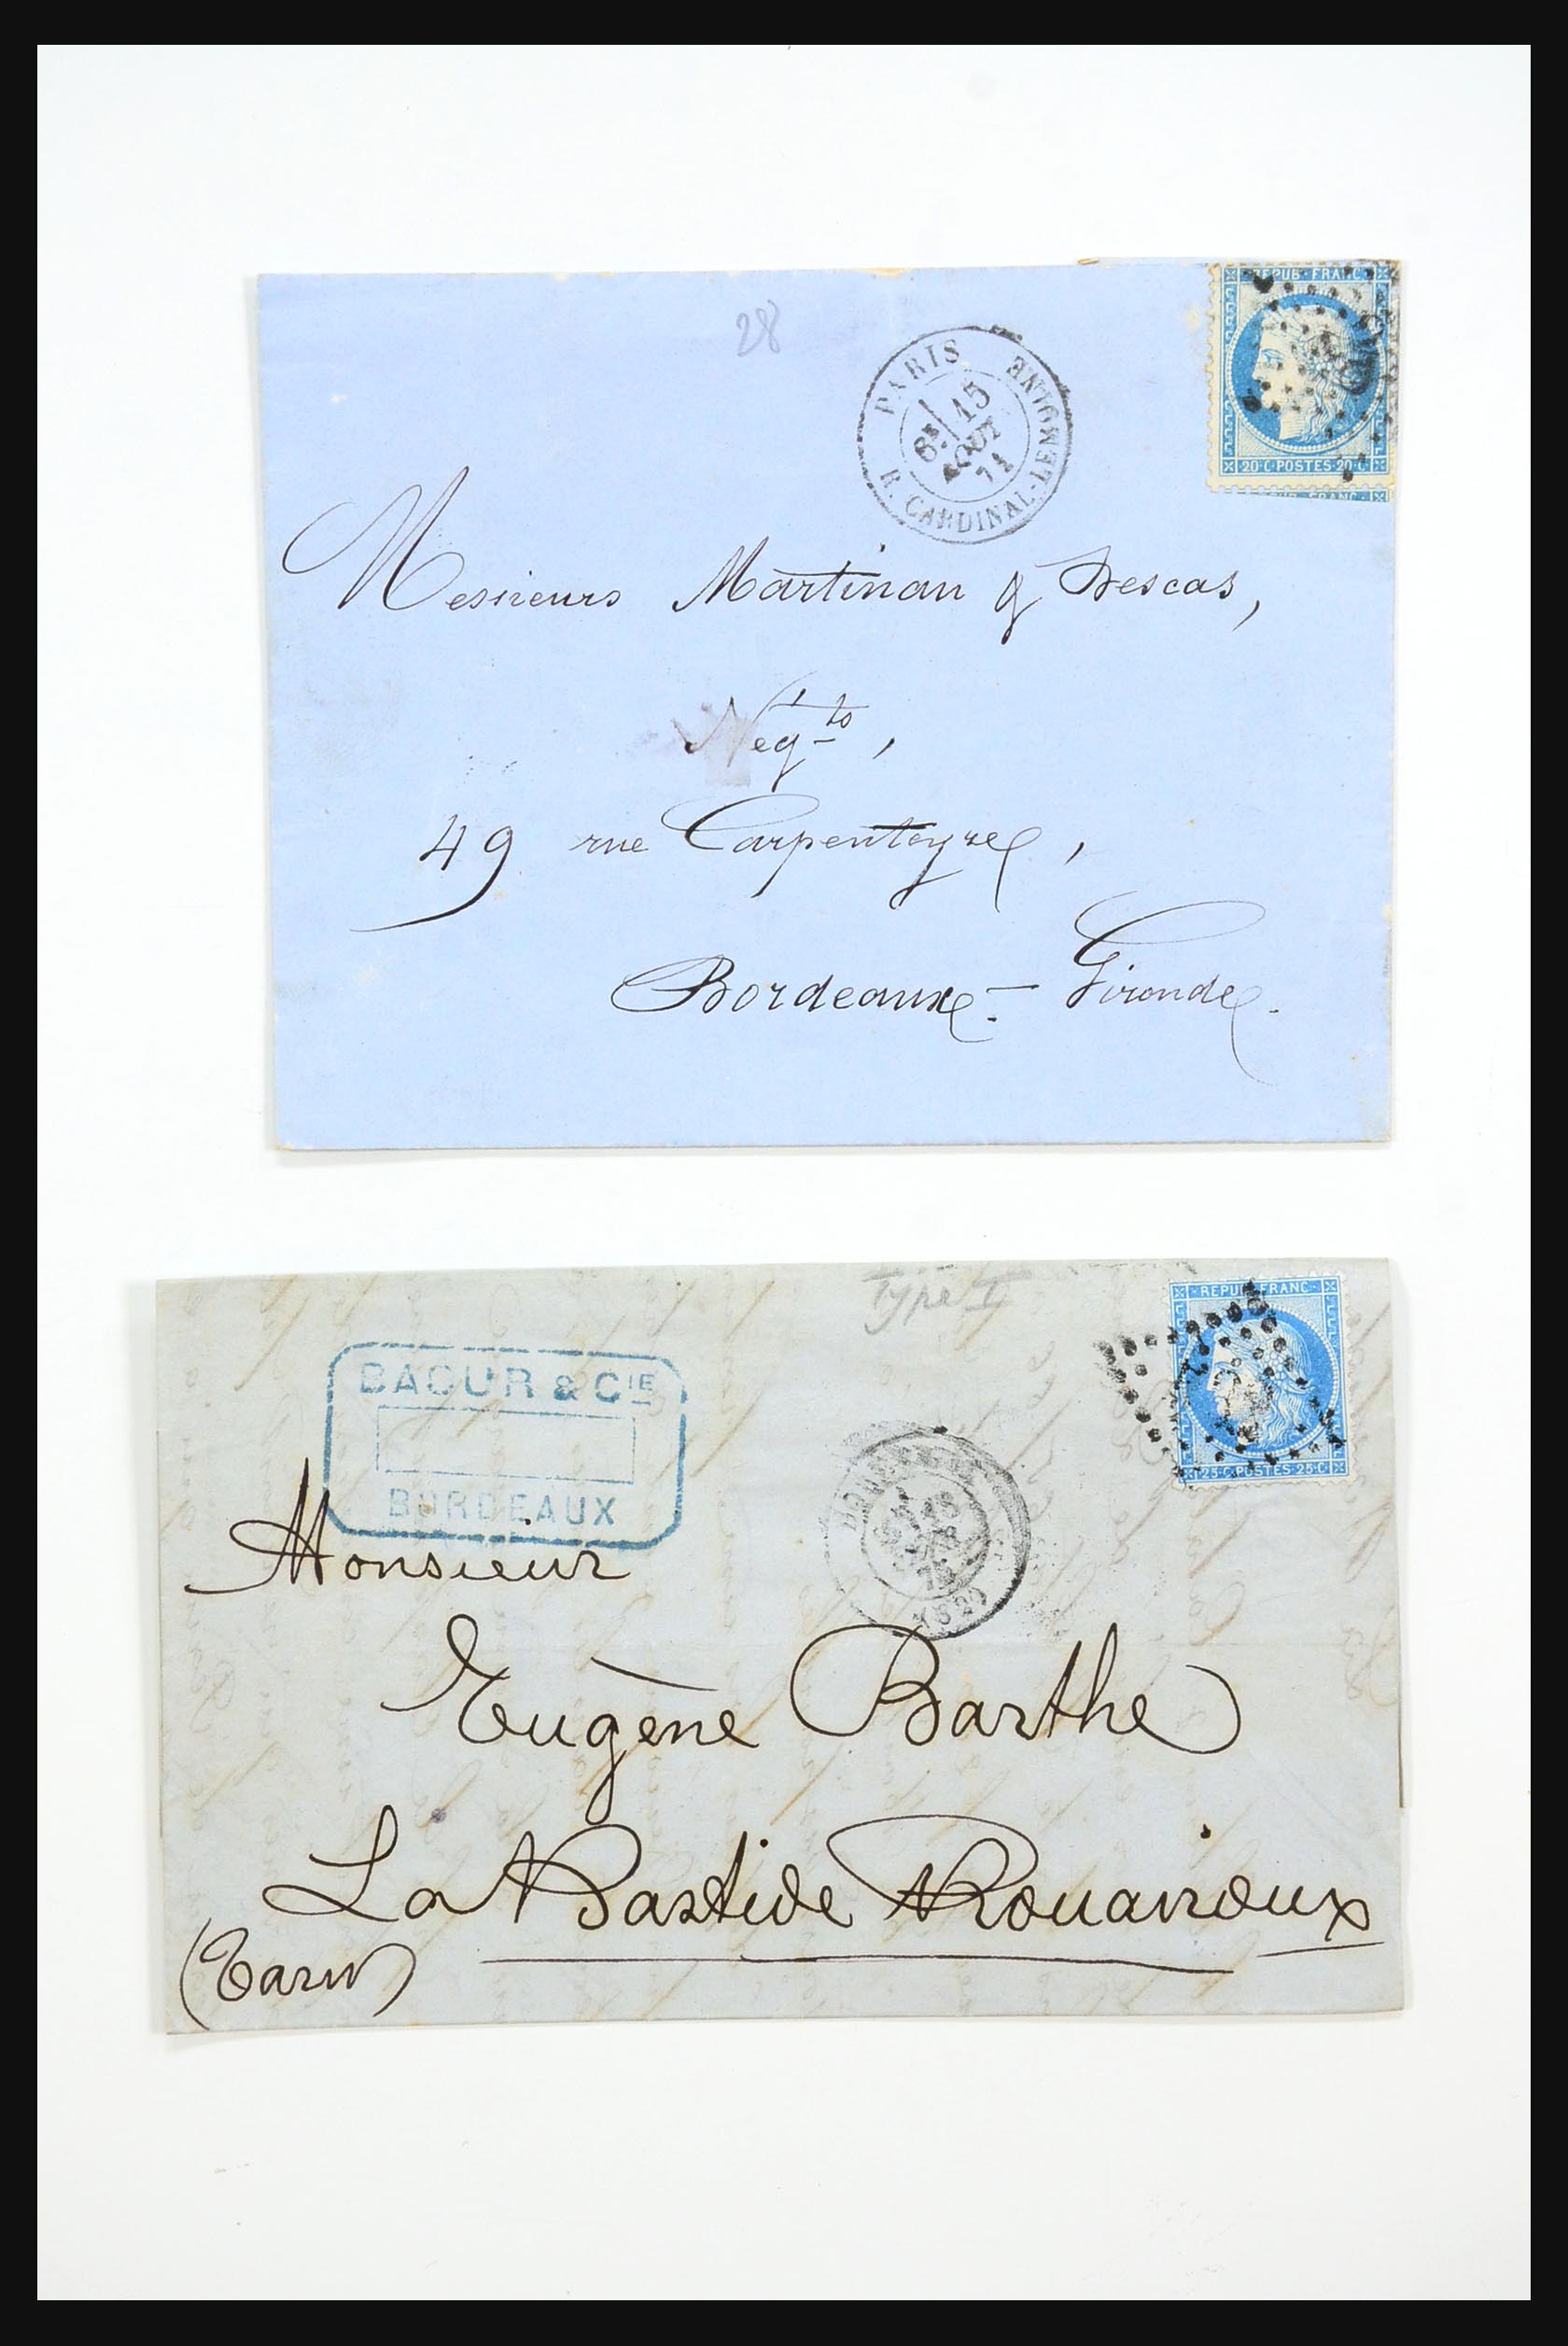 28
REPUB·FRANC
20·C·POSTES·20·C
PARIS
8E 15
AOUT
71
R. CARDINAL-LEMOINE
Messieurs Martinau & Descas,
Negts,
49 rue Carpenteyre,
Bordeaux - Gironde.
Type I
REPUB FRANC
25·C·POSTES·25·C
BACUR & CIE
BORDEAUX
Monsieur
Eugène Barthe
La Bastide Rouairoux
(Tarn)